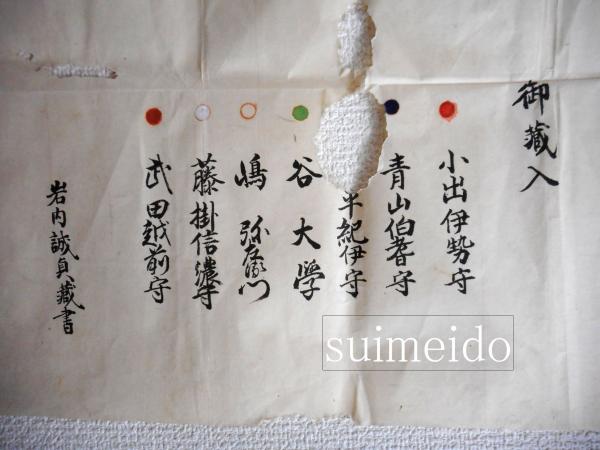 御蔵入
小出伊勢守
青山伯耆守
平紀伊守
谷大学
嶋弥左衛門
藤掛信濃守
武田越前守
岩内誠貞蔵書
suimeido